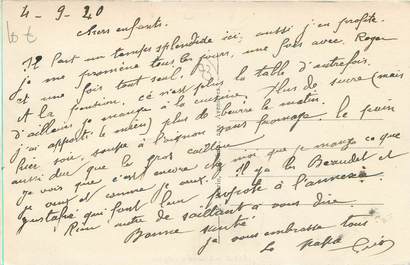 4-9-20
Chers enfants.
Il fait un temps splendide ici, aussi j'en profite.
je me promène tous les jours, une fois avec Roger
et une fois tout seul.
A la pension, ce n'est plus la table d'autrefois.
d'ailleurs je mange à la cuisine. Plus de sucre (mais
j'ai apporté le mien) plus de beurre le matin.
Hier soir, soupe à l'oignon sans fromage, le pain
aussi dur que gros caillou.
je vois que c'est encore chez moi que je mange ce que
je veux et comme je veux. Il y a les Beaudet et
Gustave qui font leur popote à l'annexe.
Rien autre de saillant à vous dire.
Bonne santé
je vous embrasse tous
le papa